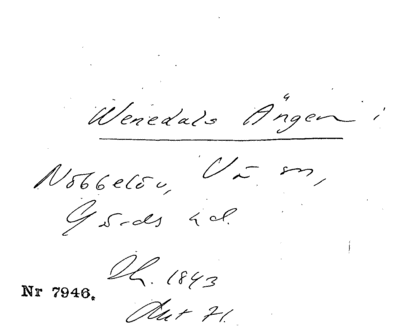 Wenedals Ängen i
Nöbbelöv, Vä sn,
Gärds hd.
Sk. 1843
Akt 71.
Nr 7946.